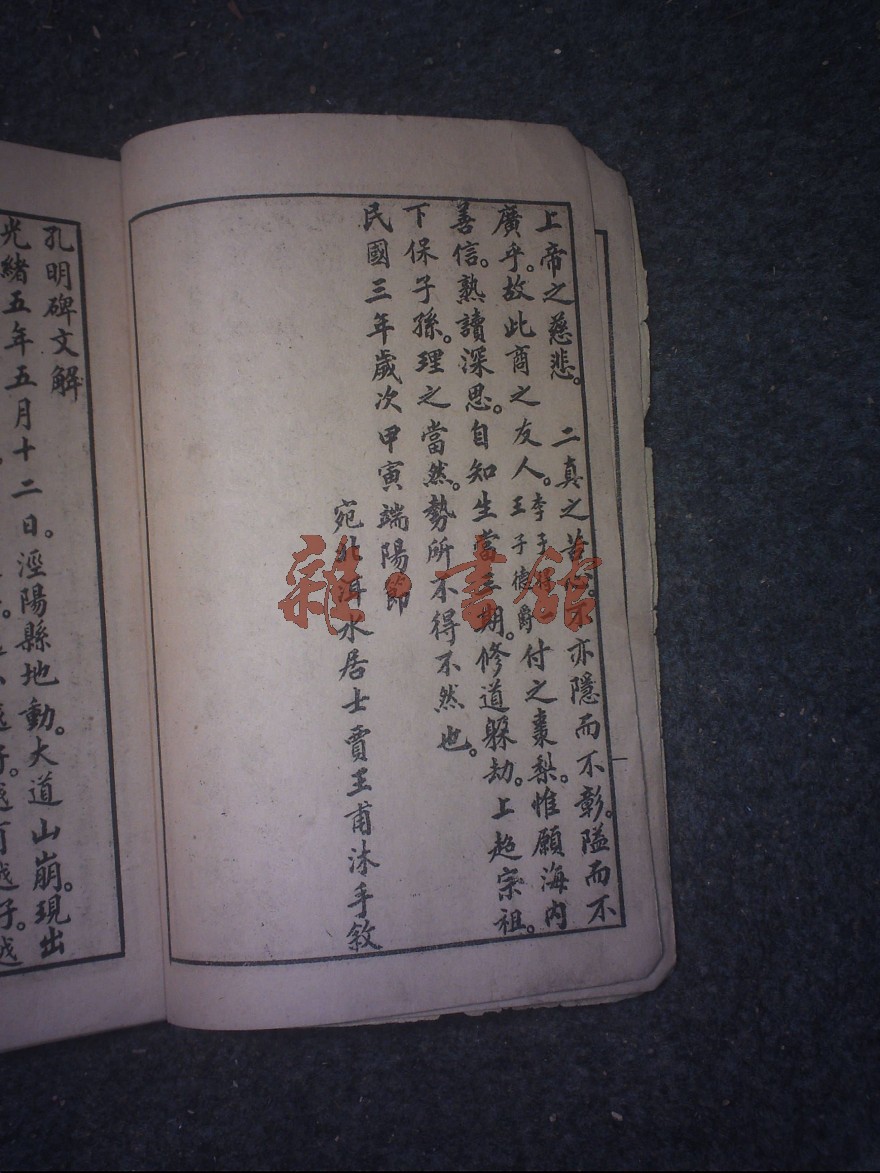 上帝之慈悲。　二真之苦心。不亦隱而不彰。隘而不
廣乎。故此商之友人。李子 王子德爵付之棗梨。惟願海內
善信。熟讀深思。自知生當三期。修道躲劫。上超宗祖。
下保子孫。理之當然。勢所不得不然也。
民國三年歲次甲寅端陽節
宛北洱水居士賈王甫沐手敘
孔明碑文解
光緒五年五月十二日。涇陽縣地動。大道山崩。現出
雜·書館